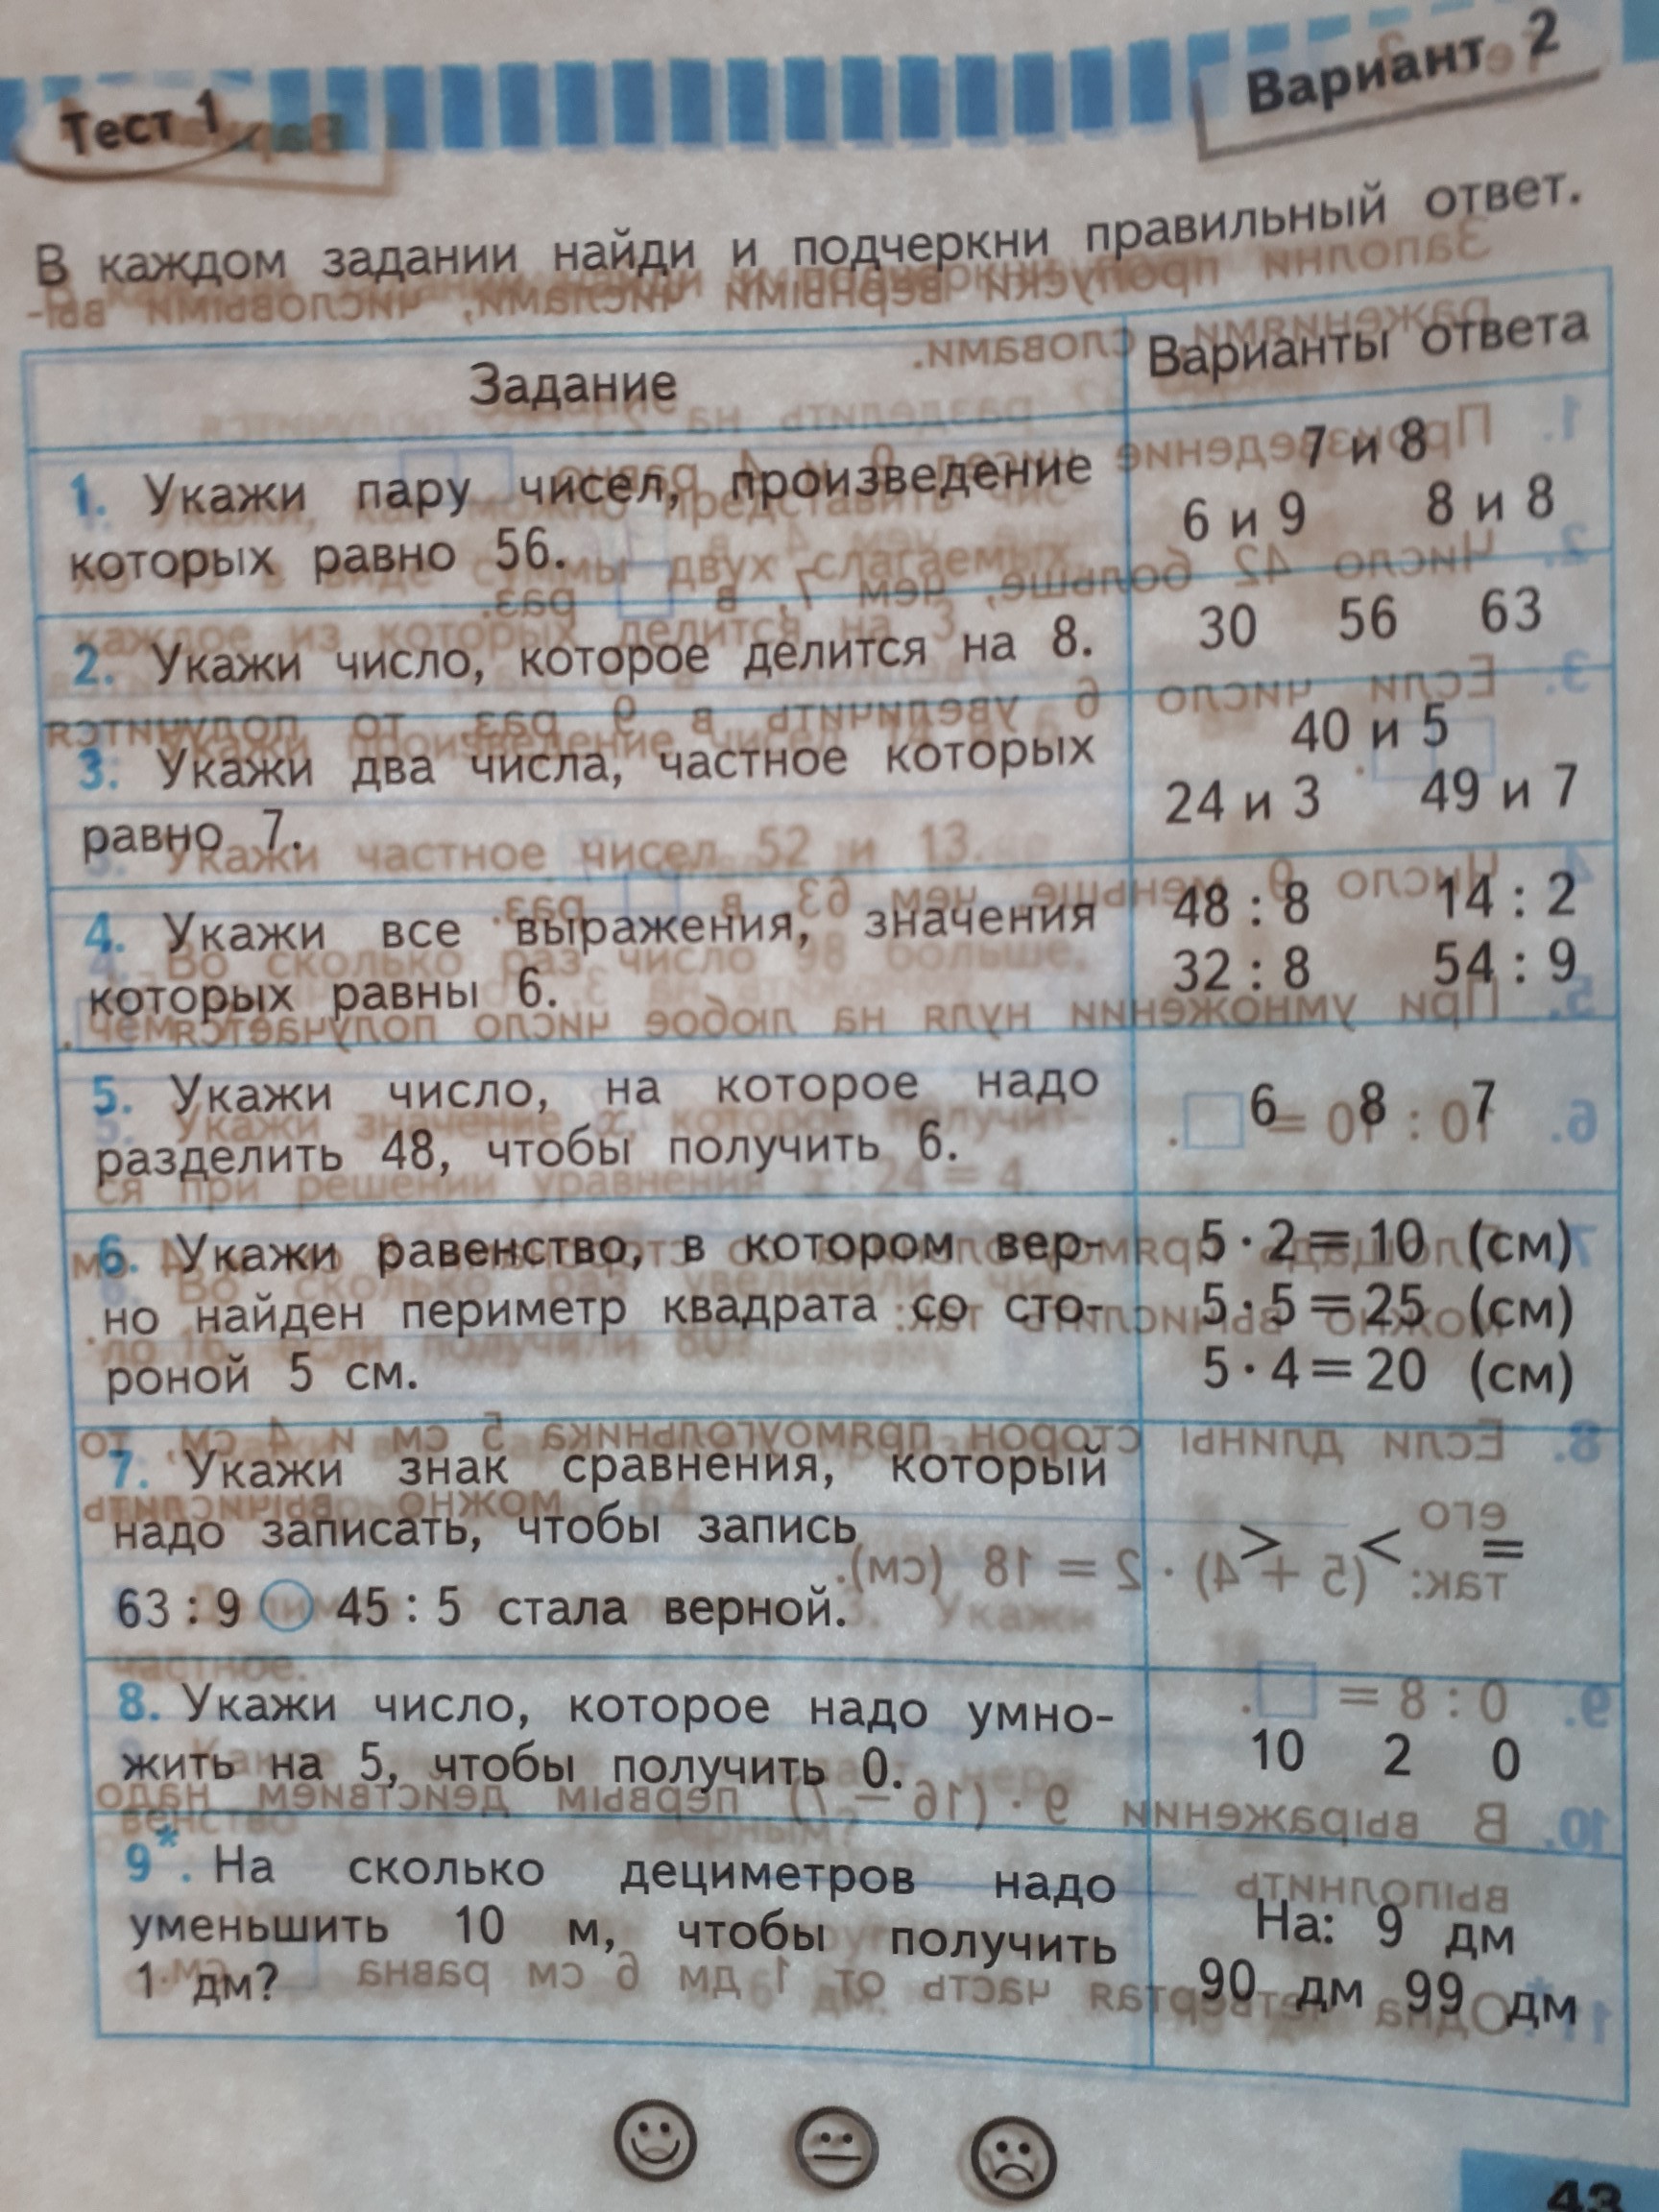 Тест 1
Вариант 2
В каждом задании найди и подчеркни правильный ответ.
Задание
Варианты ответа
1. Укажи пару чисел, произведение
которых равно 56.
7 и 8
6 и 9 8 и 8
2. Укажи число, которое делится на 8.
30 56 63
3. Укажи два числа, частное которых
равно 7.
40 и 5
24 и 3 49 и 7
4. Укажи все выражения, значения
которых равны 6.
48 : 8 14 : 2
32 : 8 54 : 9
5. Укажи число, на которое надо
разделить 48, чтобы получить 6.
6 8 7
6. Укажи равенство, в котором вер-
но найден периметр квадрата со сто-
роной 5 см.
5 · 2 = 10 (см)
5 · 5 = 25 (см)
5 · 4 = 20 (см)
7. Укажи знак сравнения, который
надо записать, чтобы запись
63 : 9 ◯ 45 : 5 стала верной.
> < =
8. Укажи число, которое надо умно-
жить на 5, чтобы получить 0.
10 2 0
9*. На сколько дециметров надо
уменьшить 10 м, чтобы получить
1 дм?
На: 9 дм
90 дм 99 дм
43